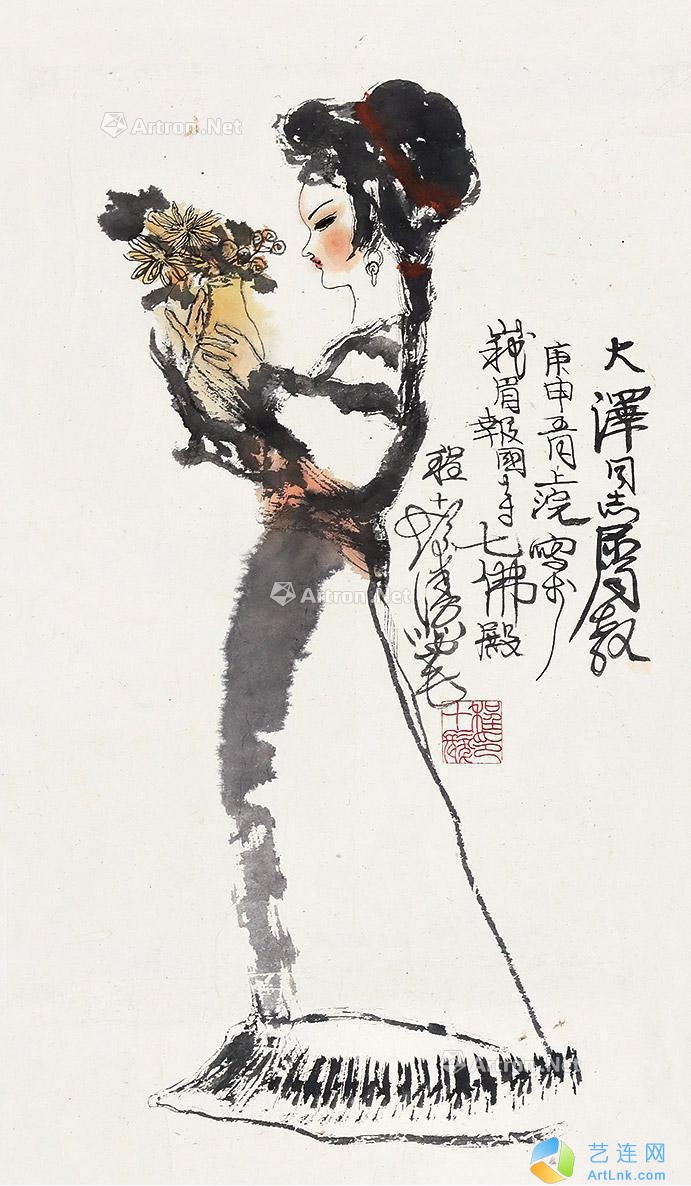 Artron.Net
大澤同志屬教
庚申五月上浣寫於
峩眉報國寺七佛殿
程十髮
Artron.Net
程印十髮
Artron.Net
艺连网
ArtLnk.com